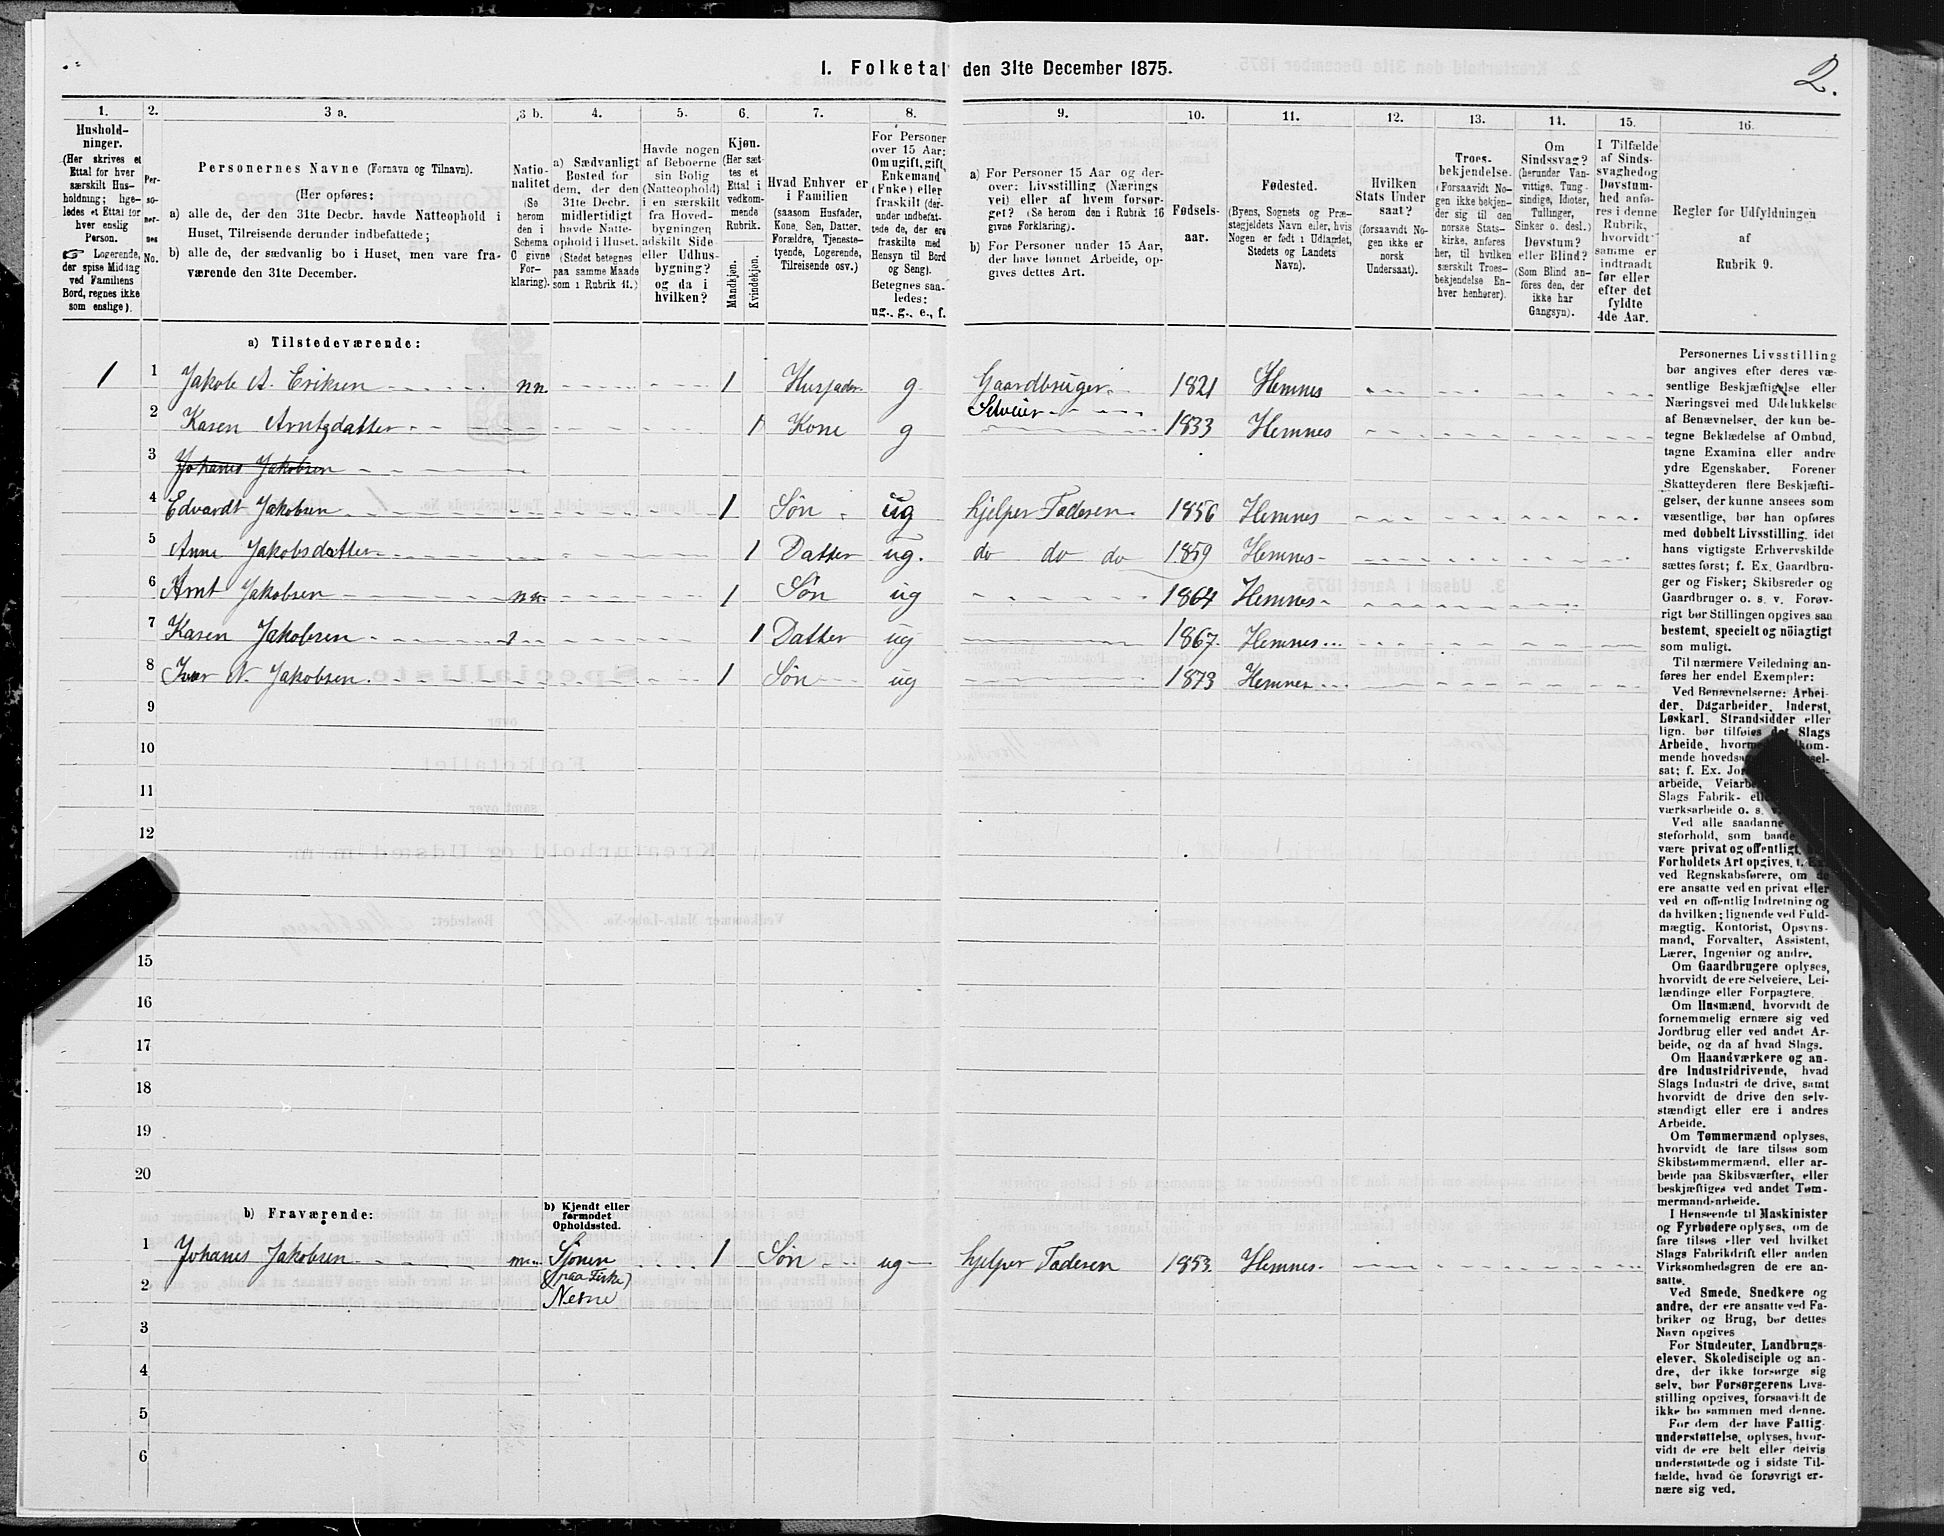 1. Folketal den 31te December 1875.
2.
1.
Hushold-
ninger.
(Her skrives et
Ettal for hver
særskilt Hus-
holdning; lige-
ledes et Ettal for
hver enslig
Person.
☞ Logerende,
der spise Middag
ved Familiens
Bord, regnes ikke
som enslige).
2.
Per-
so-
ner-
nes
No.
3 a.
Personernes Navne (Fornavn og Tilnavn).
(Her opføres:
a) alle de, der den 31te Decbr. havde Natteophold i
Huset, Tilreisende derunder indbefattede;
b) alle de, der sædvanlig bo i Huset, men vare fra-
værende den 31te December.
3 b.
Natio-
nalitet
(Se
herom
den i
Schema
C givne
For-
klaring).
4.
a) Sædvanligt
Bosted for
dem, der den
31te Decbr.
midlertidigt
havde Natte-
ophold i Huset.
(Stedet betegnes
paa samme Maade
som i Rubrik 11.)
5.
Havde nogen
af Beboerne
sin Bolig
(Natteophold)
i en særskilt
fra Hoved-
bygningen
adskilt Side-
eller Udhus-
bygning?
og da i
hvilken?
6.
Kjøn.
(Her sæt-
tes et
Ettal i
vedkom-
mende
Rubrik.
Mandkjøn.
Kvindekjøn.
7.
Hvad Enhver er
i Familien
(saasom Husfader,
Kone, Søn, Datter,
Forældre, Tjeneste-
tyende, Logerende,
Tilreisende osv.)
8.
For Personer
over 15 Aar:
Om ugift, gift,
Enkemand
(Enke) eller
fraskilt (der-
under indbefat-
tede de, der ere
fraskilte med
Hensyn til Bord
og Seng).
Betegnes saa-
ledes:
ug., g., e., f.
9.
a) For Personer 15 Aar og der-
over: Livsstilling (Nærings
vei) eller af hvem forsør-
get? (Se herom den i Rubrik 16
givne Forklaring).
b) For Personer under 15 Aar,
der have lønnet Arbeide, op-
gives dettes Art.
10.
Fødsels-
aar.
11.
Fødested.
(Byens, Sognets og Præ-
stegjeldets Navn eller, hvis
Nogen er født i Udlandet,
Stedets og Landets
Navn).
12.
Hvilken
Stats Under
saat?
(forsaavidt No-
gen ikke er
norsk
Undersaat).
13.
Troes-
bekjendelse.
(Forsaavidt No-
gen ikke bekjen-
der sig til den
norske Stats-
kirke, anføres
her, til hvilken
særskilt Troes-
bekjendelse En-
hver henhører).
14.
Om
Sindssvag?
(herunder Van-
vittige, Tung-
sindige, Idioter,
Tullinger,
Sinker o. desl.)
Døvstum?
eller Blind?
(Som Blind an-
føres den, der
ikke har
Gangsyn).
15.
I Tilfælde
af Sinds-
svaghedog
Døvstum-
hed anfø-
res i denne
Rubrik,
hvorvidt
samme er
indtraadt
før eller
efter det
fyldte
4de Aar.
16.
Regler for Udfyldningen
af
Rubrik 9.
a) Tilstedeværende:
1 1 Jakob A. Eriksen nn. 1 Husfader g Gaardbruger Selveier 1821 Hemnes
2 Karen Arntzdatter 1 Kone g 1833 Hemnes
3 Johanes Jakobsen
4 Edvardt Jakobsen 1 Søn ug hjelper Faderen 1856 Hemnes
5 Anne Jakobsdatter 1 Datter ug. do do do 1859 Hemnes
6 Arnt Jakobsen nn. 1 Søn ug 1864 Hemnes
7 Karen Jakobsen 1 Datter ug 1867. Hemnes
8 Iver N. Jakobsen. 1 Søn ug 1873 Hemnes
9
10
11
12
15
16
17
18
19
20
b) Fraværende:
b) Kjendt eller
formodet
Opholdssted.
1 Johanes Jakobsen Sjönen 1 Søn ug hjelper Faderen 1853. Hemnes
(paa Fiske)
2 Nesne
3
4
5
6
Personernes Livsstilling
bør angives efter deres væ-
sentlige Beskjæftigelse eller
Næringsvei med Udelukkelse
af Benævnelser, der kun be-
tegne Beklædelse af Ombud,
tagne Examina eller andre
ydre Egenskaber. Forener
Skatteyderen flere Beskjæfti-
gelser, der kunne ansees som
væsentlige, bør han opføres
med dobbelt Livsstilling, idet
hans vigtigste Erhvervskilde
sættes først; f. Ex. Gaardbru-
ger og Fisker; Skibsreder og
Gaardbruger o. s. v. Forøv-
rigt bør Stillingen opgives saa
bestemt, specielt og nöiagtigt
som muligt.
Til nærmere Veiledning an-
føres her endel Exempler:
Ved Benævnelserne: Arbei-
der, Dagarbeider, Inderst,
Løskarl, Strandsidder eller
lign. bør tilføies det Slags
Arbeide,
mende
sat; f. Ex.
arbeide,
Slags Fabrik-
værksarbeide o. s.
Ved alle saadanne
steforhold, som baade
være privat og offentligt,
Forholdets Art opgives,
ved Regnskabsførere, om de
ere ansatte ved en privat eller
ved en offentlig Indretning og
da hvilken; lignende ved Fuld-
mægtig, Kontorist, Opsyns-
mand, Forvalter, Assistent,
Lærer, Ingeniør og andre.
Om Gaardbrugere oplyses,
hvorvidt de ere Selveiere, Lei-
lændinge eller Forpagtere.
Om Husmænd, hvorvidt de
fornemmelig ernære sig ved
Jordbrug eller ved andet Ar-
beide, og da af hvad Slags.
Om Haandværkere og an-
dre Industridrivende, hvad
Slags Industri de drive, samt
hvorvidt de drive den selv-
stændigt eller ere i andres
Arbeide.
Om Tømmermænd oplyses,
hvorvidt de fare tilsøs som
Skibstømmermænd, eller ar-
beide paa Skibsværfter, eller
beskjæftiges ved andet Tøm-
mermandsarbeide.
I Henseende til Maskinister
og Fyrbødere oplyses, om de
fare tilsøs eller ved hvilket
Slags Fabrikdrift eller anden
Virksomhedsgren de ere an-
satte.
Ved Smede, Snedkere og
andre, der ere ansatte ved Fa-
briker og Brug, bør dettes
Navn opgives
For Studenter, Landbrugs-
elever, Skoledisciple og an-
dre, der ikke forsørge sig
selv, bør Forsørgerens Livs-
stilling opgives, forsaavidt de
ikke bo sammen med denne.
For dem der have Fattig-
understøttelse, oplyses, hvor-
vidt de ere helt eller delvis
understøttede og i sidste Til-
fælde, hvad de forøvrigt er-
nære sig ved.